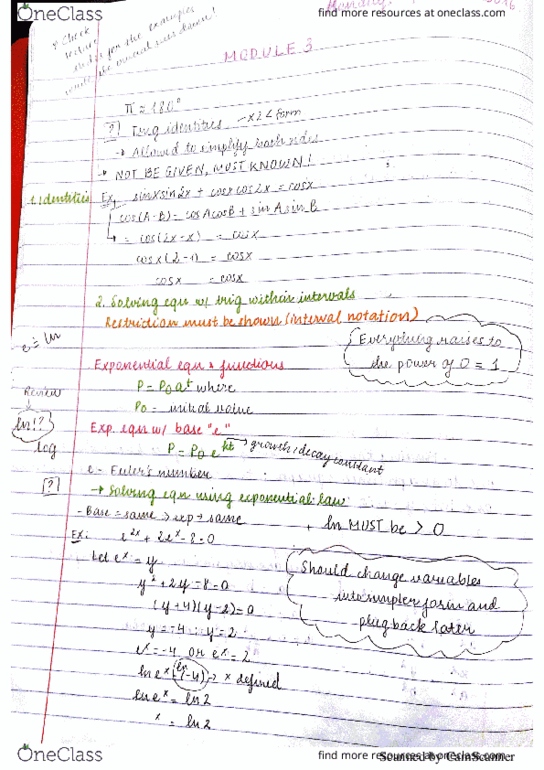 OneClass
find more resources at oneclass.com
* Check
lecture
for the examples
MODULE 3
π = 180°
[?] Trig identities - x2 < form
→ Allowed to simplify each side
→ NOT BE GIVEN, MUST KNOWN!
1. Identities Ex, sinx sin2x + cosx cos2x = cosx
cos(A-B) = cosAcosB + sinAsinB
= cos(2x-x) = cosx
cosx(2-1) = cosx
cosx = cosx
2. Solving eqn w/ trig within intervals
Restriction must be shown (interval notation)
e = ln
Everything raises to
the power of 0 = 1
Exponential eqn & functions
P = P₀aᵗ where
P₀ = initial value
Review
ln!?
log
Exp. eqn w/ base "e"
P = P₀ e^kt → growth/decay constant
e - Euler's number
[?]
→ Solving eqn using exponential law
- Base = same → exp → same
+ ln MUST be > 0
Ex: e^2x + 2e^x - 8 = 0
Let e^x = y
y² + 2y - 8 = 0
(y+4)(y-2) = 0
y = -4 y = 2
e^x = -4 or e^x = 2
Should change variables
into simpler form and
plug back later
ln e^x = ln(-4) → x defined
ln e^x = ln2
x = ln2
OneClass
find more resources at oneclass.com
Scanned by CamScanner